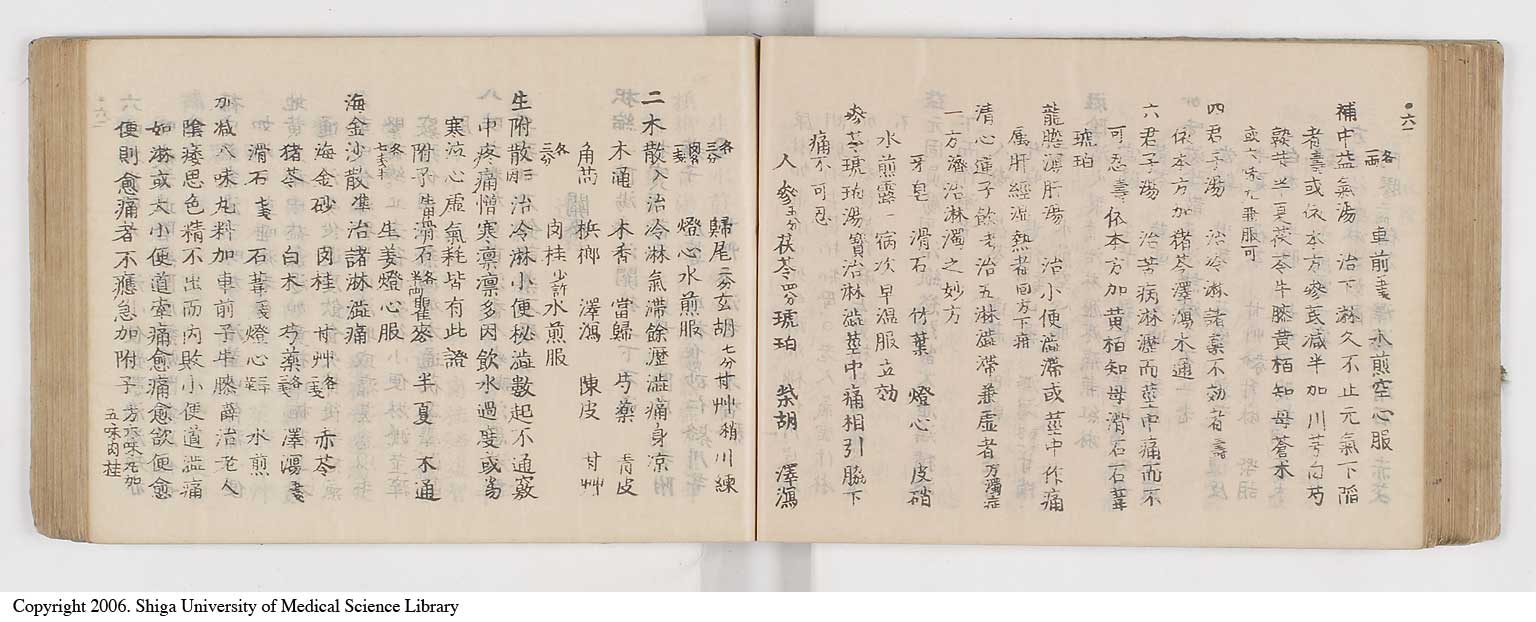 •六一
各一両 車前一戔 水煎空心服
補中益氣湯 治下淋久不止元氣下陷
者壽或依本方參芪减半加川芎白芍
熟芐半夏茯苓牛膝黄栢知母蒼朮
或六味丸兼服可
四君子湯 治冷淋諸藥不効者壽
依本方加猪苓澤瀉木通
六君子湯 治苦病淋瀝而莖中痛而不
可忍壽依本方加黄栢知母滑石石葦
琥珀
龍膽瀉肝湯 治小便澁滯或莖中作痛
属肝經湿熱者回方下疳
清心蓮子飲考治五淋澁滯兼虚者方濁症
一方瀋治淋濁之妙方
牙皂 滑石 竹葉 燈心 皮硝
水煎露一病次早温服立効
參苓琥珀湯寳治淋澁莖中痛相引脇下
痛不可忍
人參五分茯苓四分琥珀 柴胡 澤瀉
各三分 歸尾二分玄胡七分甘艸稍川練
肉各一戔 燈心水煎服
二木散入治冷淋氣滯餘瀝澁痛身凉
木通 木香 當歸 芍藥 青皮
角茴 梹榔 澤瀉 陳皮 甘艸
各三分 肉桂少許水煎服
生附散三丙治冷淋小便秘澁數起不通竅
中疼痛憎寒凛凛多因飲水過度或当
寒泣心虚氣耗皆有此證
附子 滑石各半両瞿麥 半夏 木通
各七戔半 生姜燈心服
海金沙散準治諸淋澁痛
海金砂 肉桂 甘艸各二戔 赤苓
猪苓 白朮 芍藥各三戔 澤瀉五戔
滑石七戔 石葦一戔燈心 水煎
加减八味丸料加車前子牛膝薛治老人
陰痿思色精不出而内敗小便道澁痛
如淋或大小便道牽痛愈痛愈欲便愈
便則愈痛者不應急加附子方八味丸加
五味肉桂